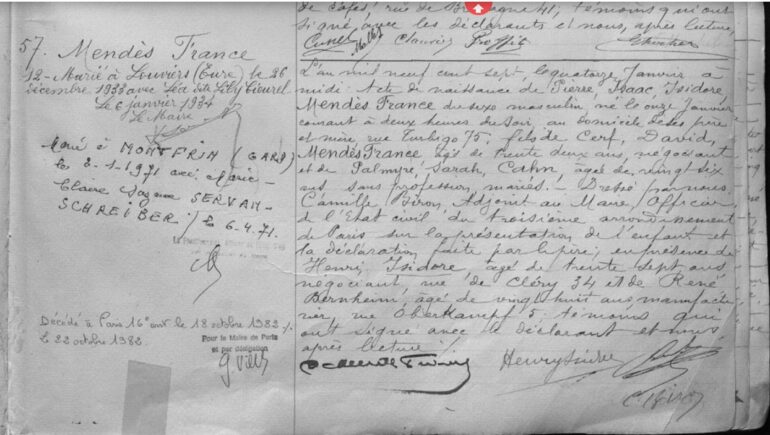 de cafés, rue de Bretagne 41, témoins qui ont
signé avec les déclarants et nous, après lecture.
57. Mendès France
12 - Marié à Louviers (Eure) le 26
décembre 1933 avec Léa dite Lily Cicurel
Le 6 janvier 1934
Le Maire
Marié à MONTFRIN (GARD)
le 2-1-1971 avec Marie-
Claire Jacqueline SERVAN-
SCHREIBER / le 6.4.71.
Décédé à Paris 16e arrt le 18 octobre 1982 /.
Le 22 octobre 1982.
Pour le Maire de Paris
et par délégation
L'an mil neuf cent sept, le quatorze Janvier à
midi. Acte de naissance de Pierre, Isaac, Isidore,
Mendès France du sexe masculin, né le onze Janvier
courant à deux heures du soir, au domicile de ses père
et mère, rue Turbigo 75; fils de Cerf, David,
Mendès France âgé de trente deux ans, négociant
et de Palmyre, Sarah, Cahn, âgée de vingt six
ans, sans profession, mariés. - Dressé par nous,
Camille Biron, Adjoint au Maire, Officier
de l'Etat civil du troisième arrondissement
de Paris sur la présentation de l'enfant et
la déclaration faite par le père; en présence de
Henri, Isidore, âgé de trente sept ans
négociant, rue de Cléry 34 et de René
Bernheim, âgé de vingt huit ans, manufactu-
rier, rue Oberkampf 5; témoins qui
ont signé avec le déclarant et nous,
après lecture.